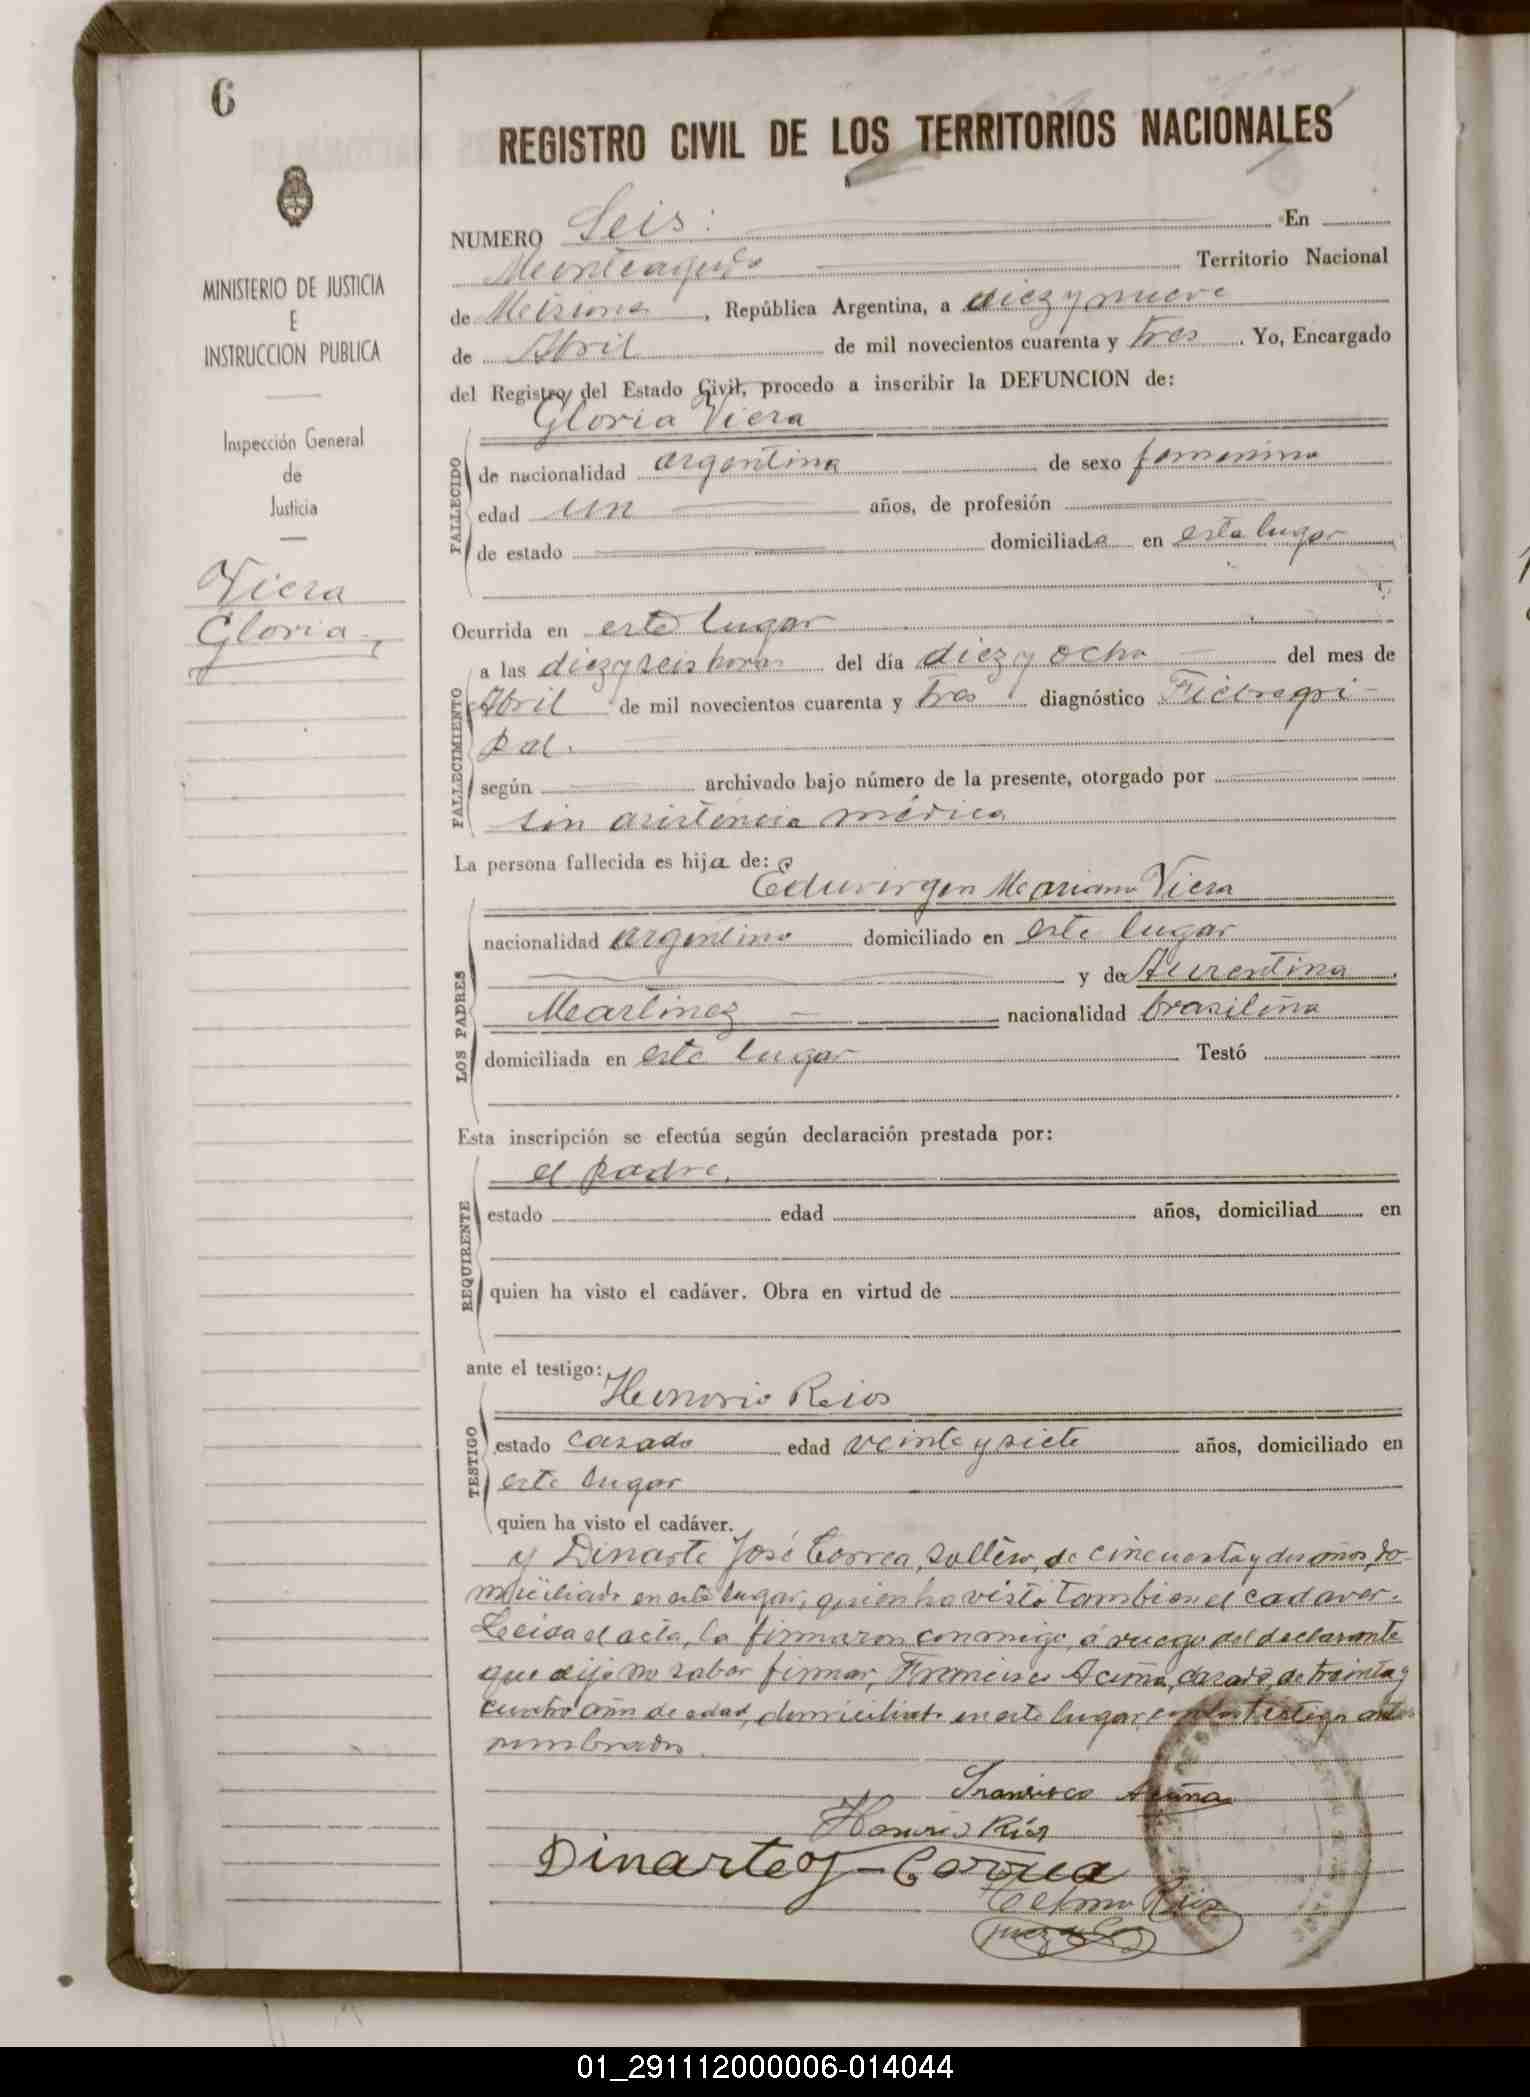 6
REGISTRO CIVIL DE LOS TERRITORIOS NACIONALES
MINISTERIO DE JUSTICIA
E
INSTRUCCION PUBLICA
Inspección General
de
Justicia
Viera
Gloria
NUMERO Seis: En
Monteagudo Territorio Nacional
de Misiones, República Argentina, a diez y nueve
de Abril de mil novecientos cuarenta y tres. Yo, Encargado
del Registro del Estado Civil, procedo a inscribir la DEFUNCION de:
Gloria Viera
FALLECIDO
de nacionalidad argentina de sexo femenino
edad un años, de profesión
de estado domiciliada en este lugar
Ocurrida en este lugar
FALLECIMIENTO
a las diez y seis horas del día diez y ocho del mes de
Abril de mil novecientos cuarenta y tres diagnóstico Fiebre gri-
pal.
según archivado bajo número de la presente, otorgado por
sin asistencia médica
La persona fallecida es hija de:
Eduvirgen Mariano Viera
LOS PADRES
nacionalidad argentino domiciliado en este lugar
y de Aurentina
Martinez nacionalidad brasileña
domiciliada en este lugar Testó
Esta inscripción se efectúa según declaración prestada por:
el padre.
REQUIRENTE
estado edad años, domiciliad en
quien ha visto el cadáver. Obra en virtud de
ante el testigo:
Honorio Rios
TESTIGO
estado casado edad veinte y siete años, domiciliado en
este lugar
quien ha visto el cadáver.
y Dinarte José Correa, soltero, de cincuenta y dos años, do-
miciliado en este lugar, quien ha visto tambien el cadaver.
Leida el acta, la firmaron conmigo, á ruego del declarante
que dijo no saber firmar, Francisco Acuña, casado, de treinta y
cuatro años de edad, domiciliado en este lugar, con los testigos antes
nombrados.
Francisco Acuña
Honorio Ríos
Dinarte J - Correa
Rios
01_291112000006-014044